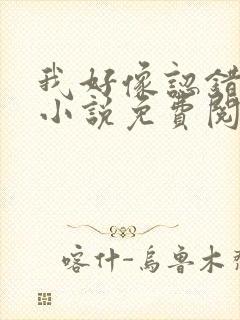 我好像認錯
小說免費閱
喀什-烏魯木齊